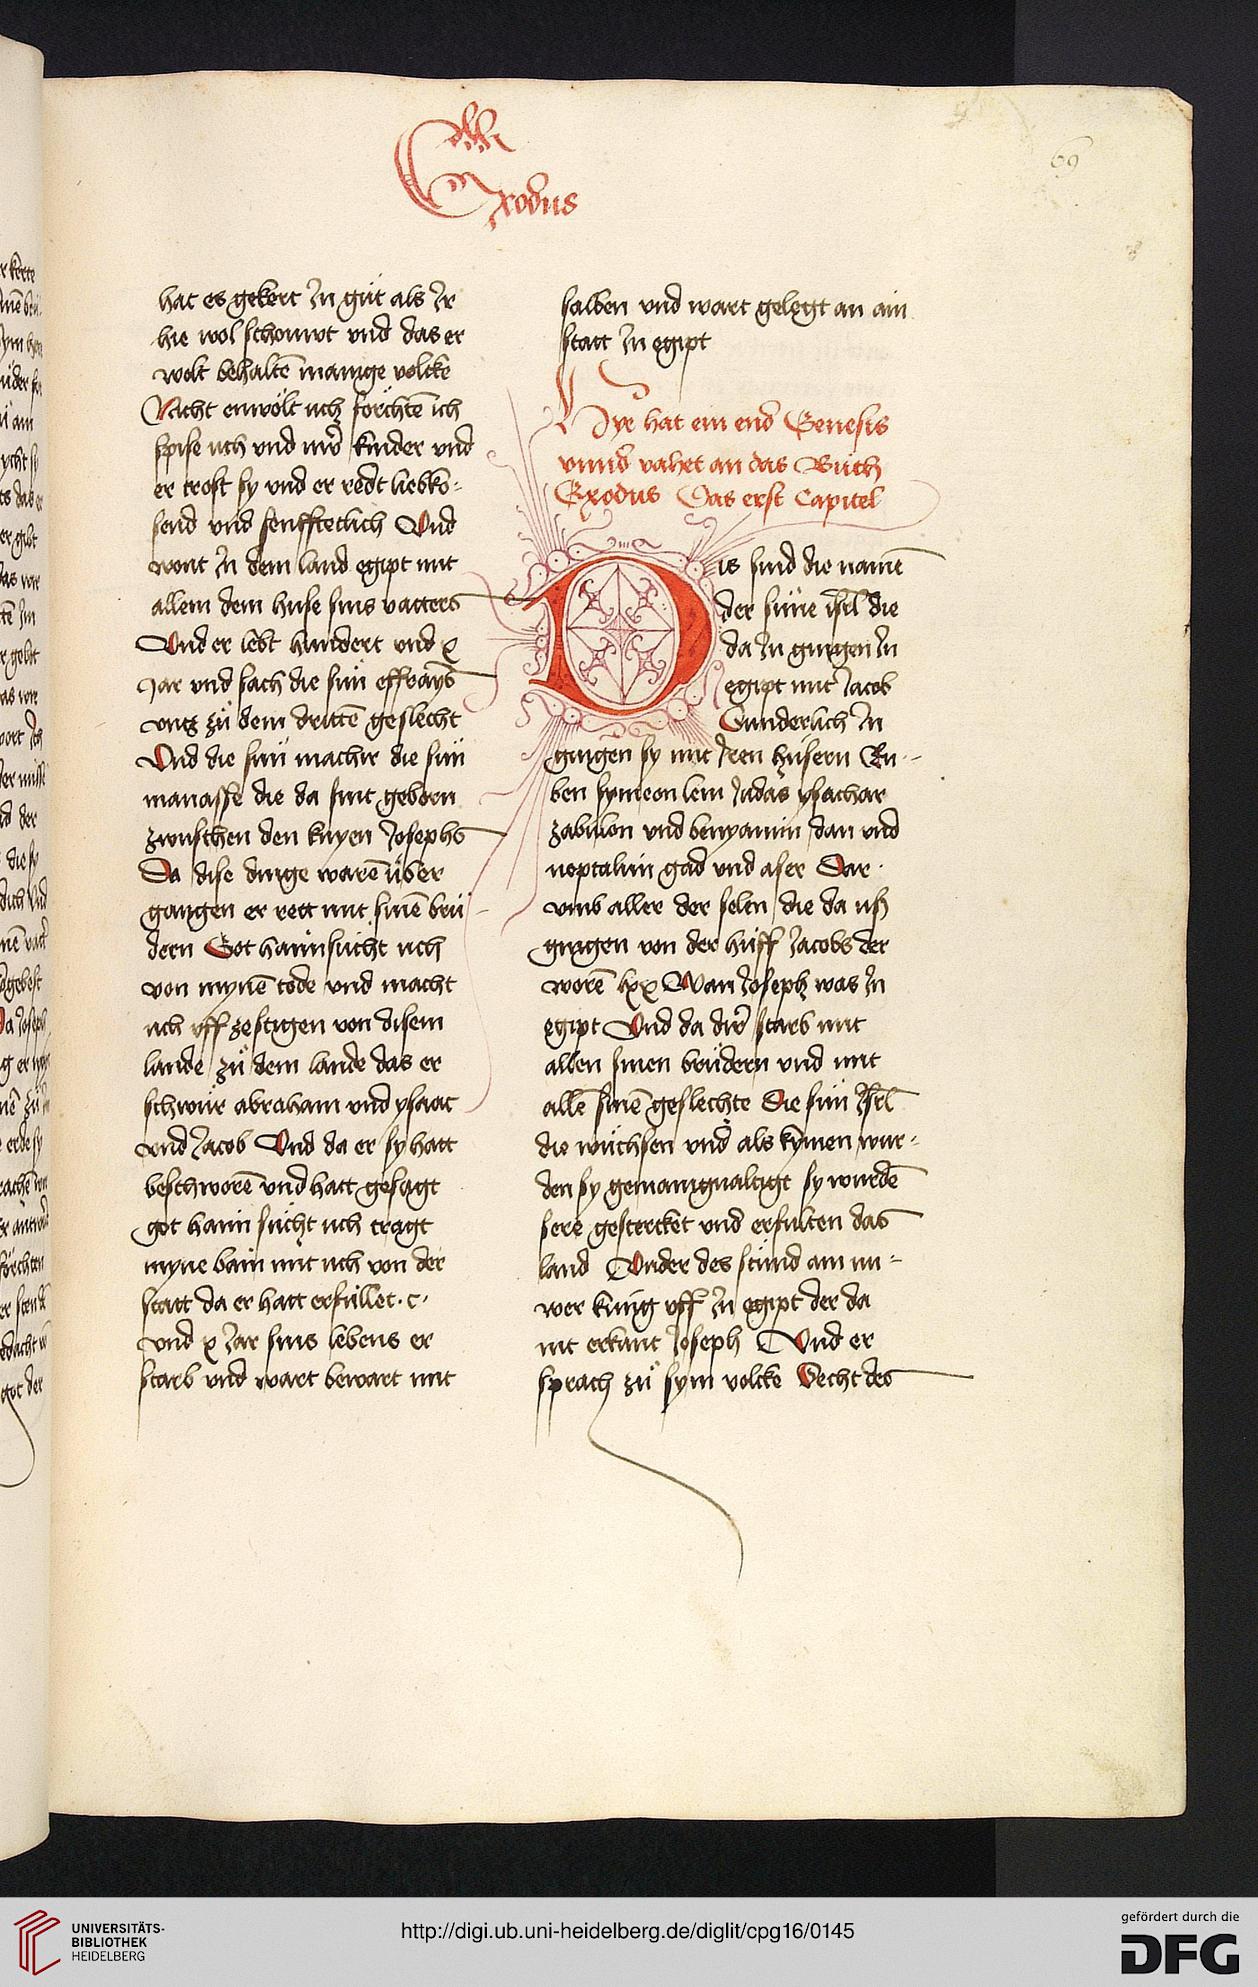 Exodus
69
hat es gekert Jn gůt als Jr
hie wol schouwt vnd das er
wolt behaltē mānige volcke
Nicht enwölt uch förchtē ich
spise uch vnd uwr̄ kinder vnd
er trost sy vnd er redt liebko-
send vnd senfftclich Vnd
wont Jn dem land egipt mit
allem dem huse sins vatters
Vnd er lebt hundert vnd x
Jar vnd sach die sün effraÿs
vntz zů dem drittē geslecht
Vnd die sün machir die sün
manasse die da sint geborn
zwuschen den knyen Josephs
Da dise dinge warē über
gangen er rett mit sinē brü-
dern Got haimsůcht uch
von mynē tode vnd macht
uch vff ze stigen von disem
lande zů dem lande das er
schwůr abraham vnd ysaac
vnd Jacob Vnd da er sy hatt
beschworē vnd hatt gesagt
got haim sůcht uch tragt
myne bain mit uch von der
statt da er hatt erfüllet . c .
vnd x Jar sins lebens er
starb vnd wart bewart mit
salben vnd wart gelegt an ain
statt Jn egipt
Hye hat ein end Genesis
vnnd vahet an das Bůch
Exodus Das erst Capitel
Dis sind die namē
der süne isrl̄ die
da Jn gingen Jn
egipt mit Jacob
Sunderlich Jn
gingen sy mit Jren hüsern Ru-
ben symeon leui Judas ysachar
zabulon vnd benyamin dan vnd
neptalim gad vnd aser Dar
vmb aller der selen die da uß
gingen von der hüff Jacobs der
worē lxx Wan Joseph was Jn
egipt Vnd da dir̄ starb mit
allen sinen brüdern vnd mit
allē sinē geslechte Die sün Jsrl̄
die wůchsen vnd als kymen wur-
den sy gemanigualtigt sy wurdē
sere gestercket vnd erfulten das
land Vnder des stůnd ain nu-
wer küng vff Jn egipt der da
nit erkant Joseph Vnd er
sprach zů sym volcke Secht des
UNIVERSITÄTS-
BIBLIOTHEK
HEIDELBERG
http://digi.ub.uni-heidelberg.de/diglit/cpg16/0145
gefördert durch die
DFG